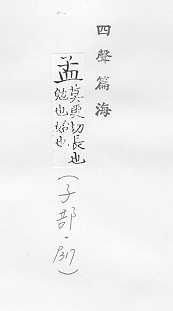 四聲篇海
孟莫更切長也
勉也始也
(子部.